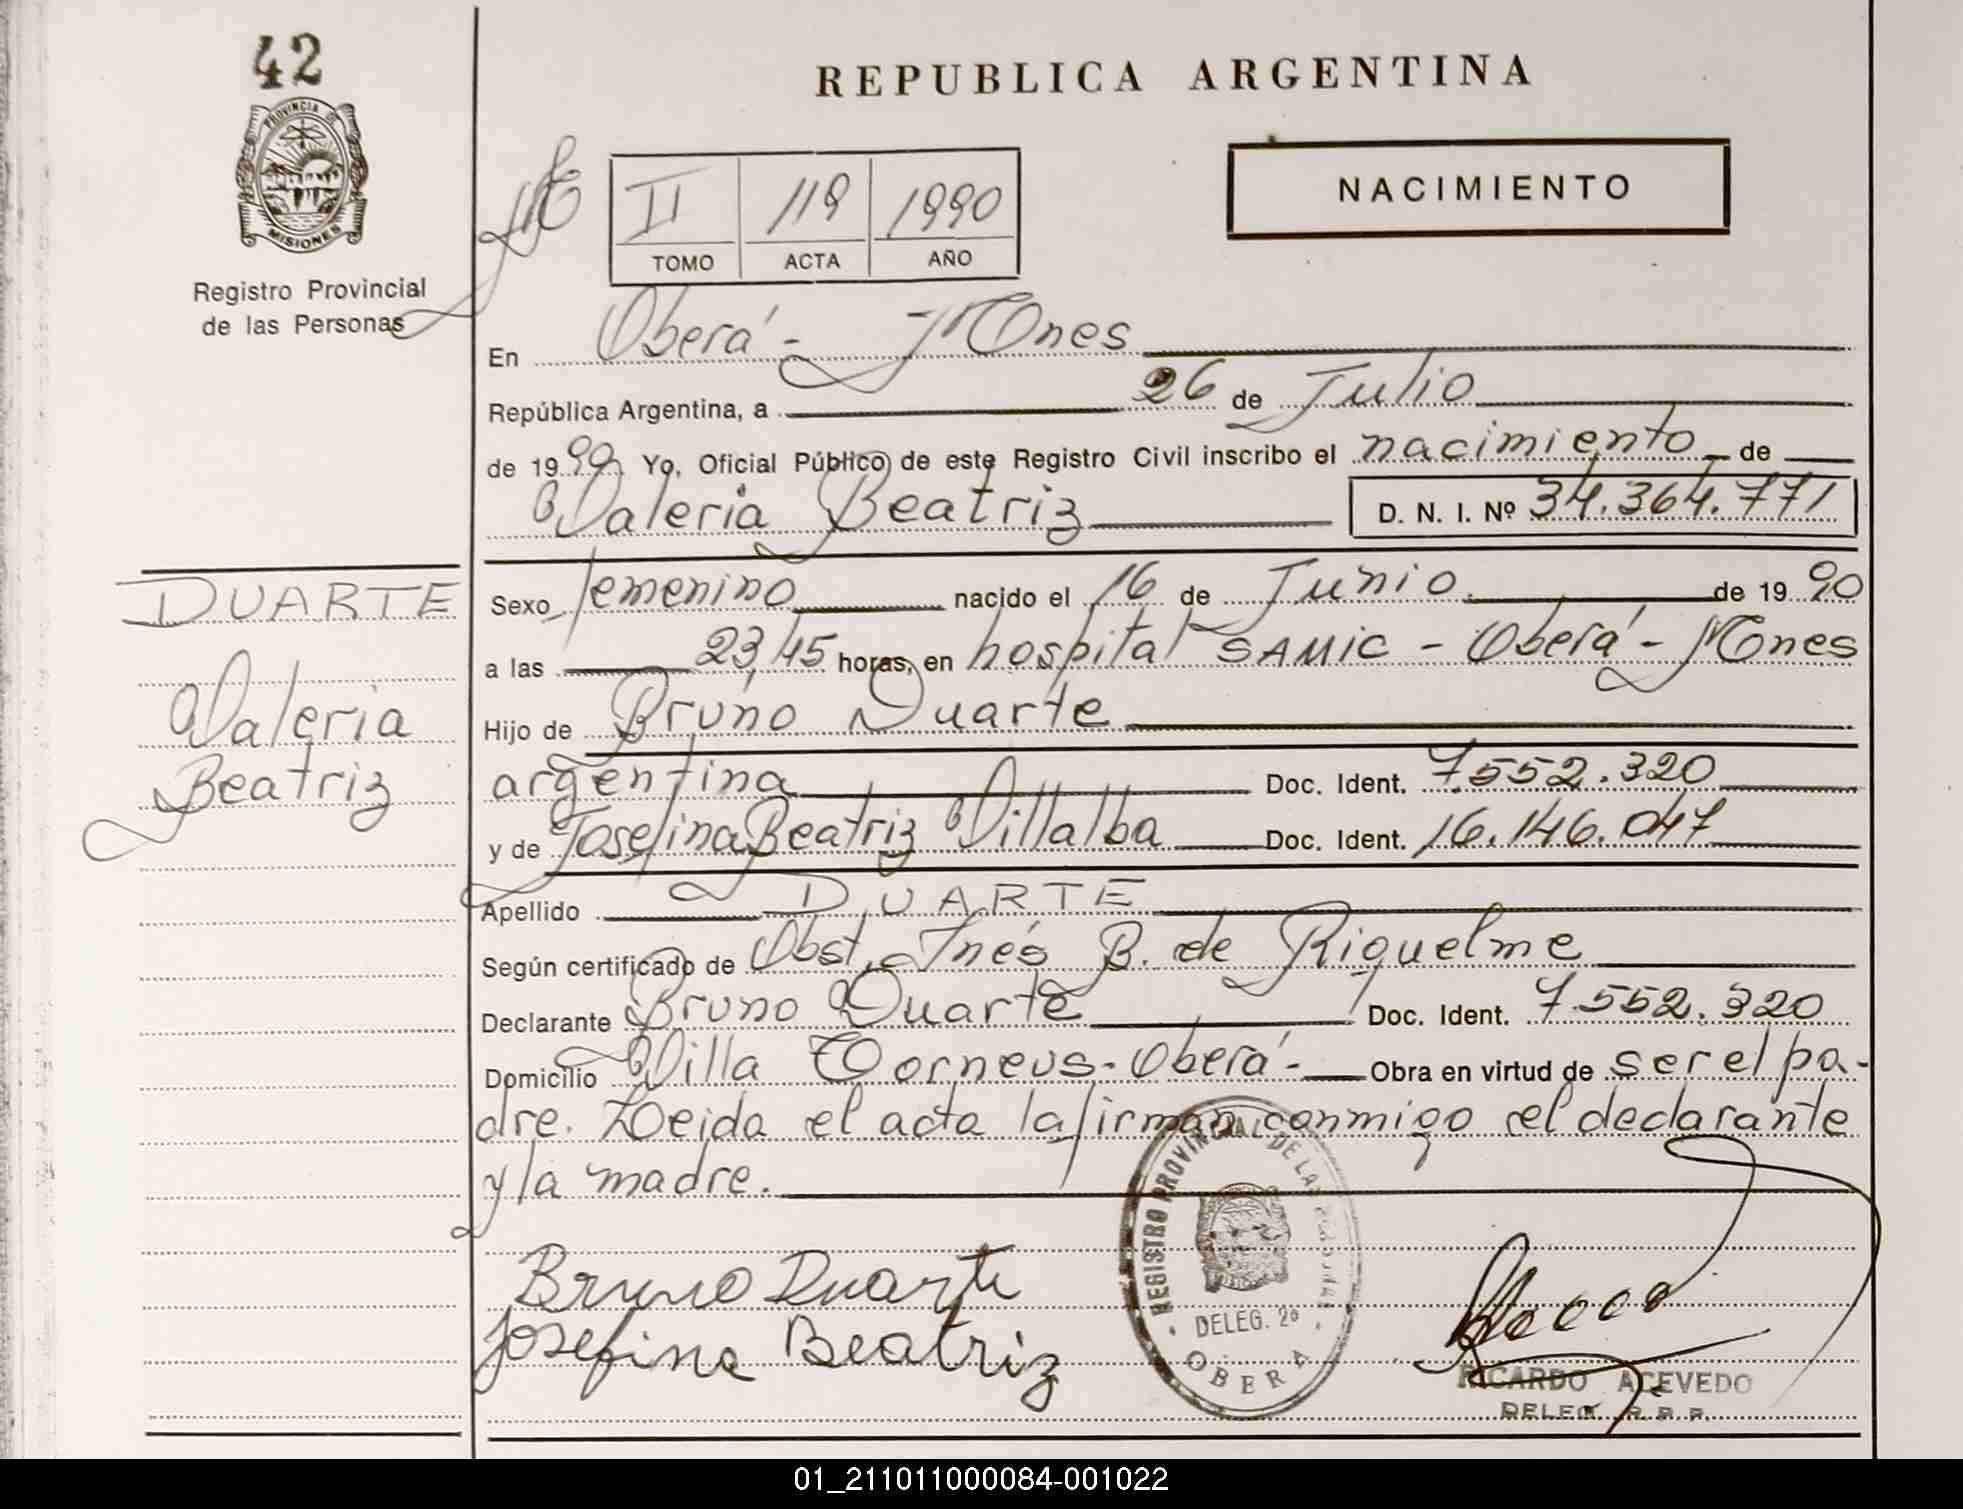 42
PROVINCIA DE
MISIONES
Registro Provincial
de las Personas
REPUBLICA ARGENTINA
NACIMIENTO
II 119 1990
TOMO ACTA AÑO
En Oberá - Mnes
República Argentina, a 26 de Julio
de 1990 Yo, Oficial Público de este Registro Civil inscribo el nacimiento de
Valeria Beatriz D. N. I. Nº 34.364.771
DUARTE
Valeria
Beatriz
Sexo femenino nacido el 16 de Junio de 1990
a las 23,45 horas, en hospital SAMIC - Oberá - Mnes
Hijo de Bruno Duarte
argentina Doc. Ident. 7.552.320
y de Josefina Beatriz Villalba Doc. Ident. 16.146.047
Apellido DUARTE
Según certificado de Obst. Inés B. de Riquelme
Declarante Bruno Duarte Doc. Ident. 7.552.320
Domicilio Villa Torneus - Oberá - Obra en virtud de ser el pa-
dre. Leida el acta la firman conmigo el declarante
y la madre.
Bruno Duarte
Josefina Beatriz
REGISTRO PROVINCIAL DE LAS PERSONAS
DELEG. 2º
OBERA
RICARDO ACEVEDO
DELEG. R. P. P.
01_211011000084-001022